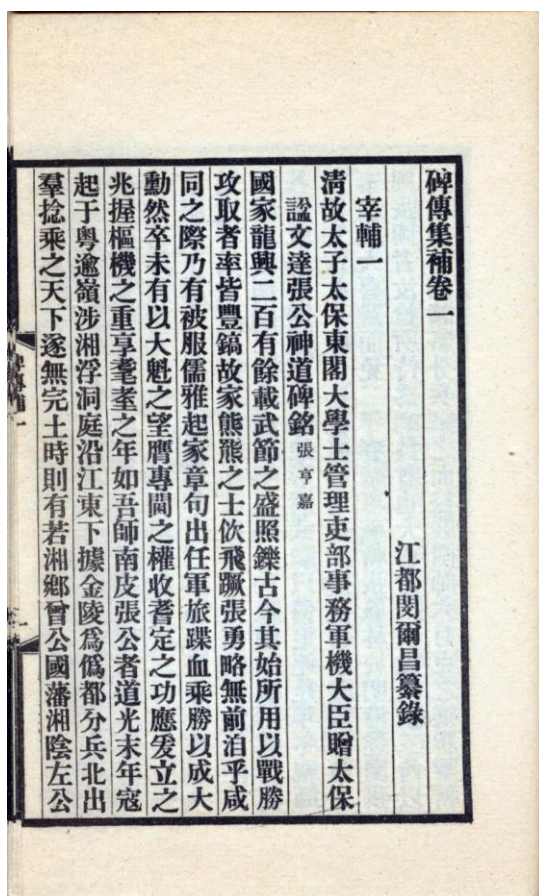 碑傳集補卷一
江都閔爾昌纂錄
宰輔一
清故太子太保東閣大學士管理吏部事務軍機大臣贈太保
諡文達張公神道碑銘 張亨嘉
國家龍興二百有餘載武節之盛照鑠古今其始所用以戰勝
攻取者率皆豐鎬故家熊羆之士佽飛蹶張勇略無前洎乎咸
同之際乃有被服儒雅起家章句出任軍旅蹀血乘勝以成大
勳然卒未有以大魁之望膺專閫之權收耆定之功應爰立之
兆握樞機之重享耄耋之年如吾師南皮張公者道光末年寇
起于粵逾嶺涉湘浮洞庭沿江東下據金陵爲僞都分兵北出
羣捻乘之天下遂無完土時則有若湘鄉曾公國藩湘陰左公